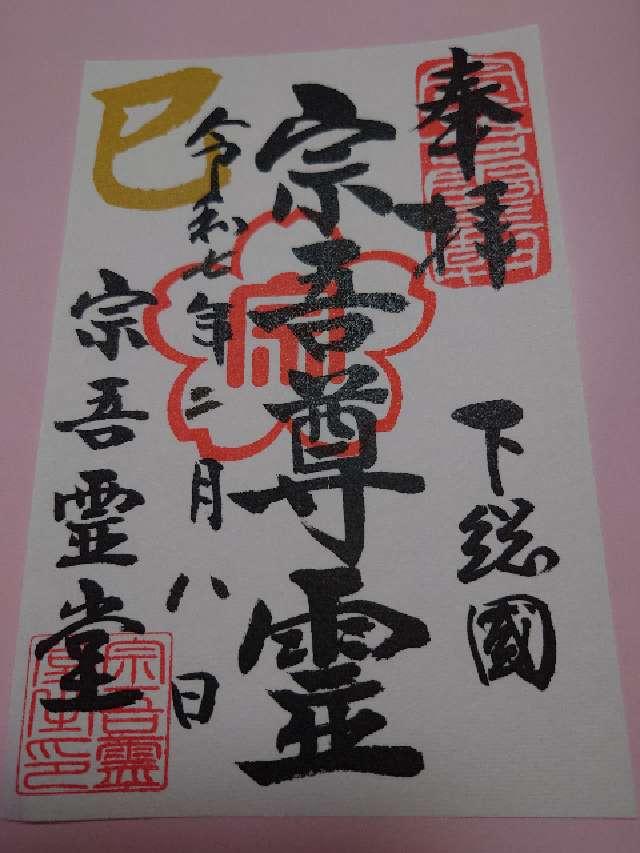 奉拝
下総國
宗吾尊霊
令和七年二月八日
巳
宗吾霊堂